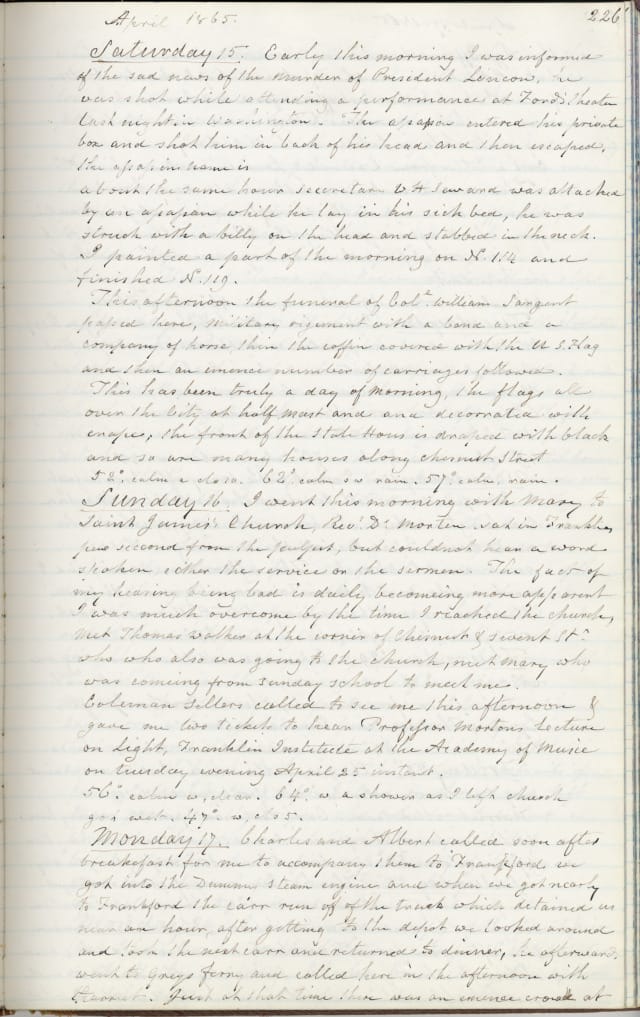 April 1865.
226
Saturday 15. Early this morning I was informed
of the sad news of the murder of President Lincon, he
was shot while attending a performance at Ford's theater
last night in Washington. The assasin entered his private
box and shot him in back of his head and then escaped.
the assasins name is
about the same hour secretary W H Seward was attacked
by an assasan while he lay in his sick bed, he was
struck with a billy on the head and stabbed in the neck.
I painted a part of the morning on N. 114 and
finished N. 119.
This afternoon the funeral of Col. William Sargent
passed here, military rigement with a band and a
company of horse, then the coffin covered with the U S Flag
and then an emence number of carriages followed.
This has been truly a day of morning, the flags all
over the City at half mast and and decorrated with
crape, the front of the State Hous is draped with black
and so are many houses along chesnut Street
52°. calm e clou. 62°. calm s w rain. 57°. calm. rain.
Sunday 16. I went this morning with Mary to
Saint James's Church, Revd. Dr. Morten. sat in Franklins
pew second from the pulpit, but could not hear a word
spoken either the service or the sermen. The fact of
my hearing being bad is daily becomeing more apparent
I was much overcome by the time I reached the church,
met Thomas Walker at the corner of Chesnut & Sevent St.
who who also was going to the church, met mary who
was comeing from sunday school to meet me.
Coleman Sellers called to see me this afternoon &
gave me two tickets to hear Professor Mortons Lecture
on Light, Franklin Institute at the Academy of Music
on tuesday evening April 25 instant.
56°. calm w, clear. 64°. w a shower as I left church
got wet. 47°. w, clo s.
Monday 17. Charles and Albert called soon after
breakefast for me to accompany them to Frankford we
got into the Dummy steam engine and when we got nearly
to Frankford the carr run off of the track which detained us
near an hour, after getting to the depot we looked around
and took the next carr and returned to dinner, he afterwards
went to Greys ferry and called here in the afternoon with
Harriet. Just at that time there was an emence crowd at